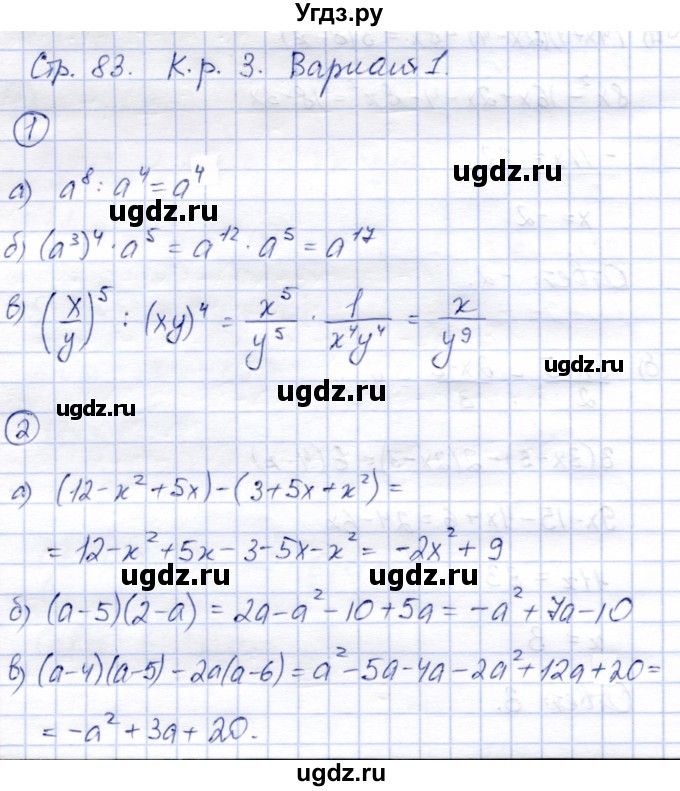 Угдз.ру
Стр. 83. К.р. 3. Вариант 1.
1
ugdz.ru
а) a⁸ : a⁴ = a⁴
ugdz.ru
б) (a³)⁴ · a⁵ = a¹² · a⁵ = a¹⁷
в) (x/y)⁵ : (xy)⁴ = x⁵/y⁵ · 1/x⁴y⁴ = x/y⁹
ugdz.ru
ugdz.ru
ugdz.ru
2
а) (12 - x² + 5x) - (3 + 5x + x²) =
= 12 - x² + 5x - 3 - 5x - x² = -2x² + 9
ugdz.ru ugdz.ru
б) (a - 5)(2 - a) = 2a - a² - 10 + 5a = -a² + 7a - 10
в) (a - 4)(a - 5) - 2a(a - 6) = a² - 5a - 4a - 2a² + 12a + 20 =
ugdz.ru
= -a² + 3a + 20.
ugdz.ru
ugdz.ru